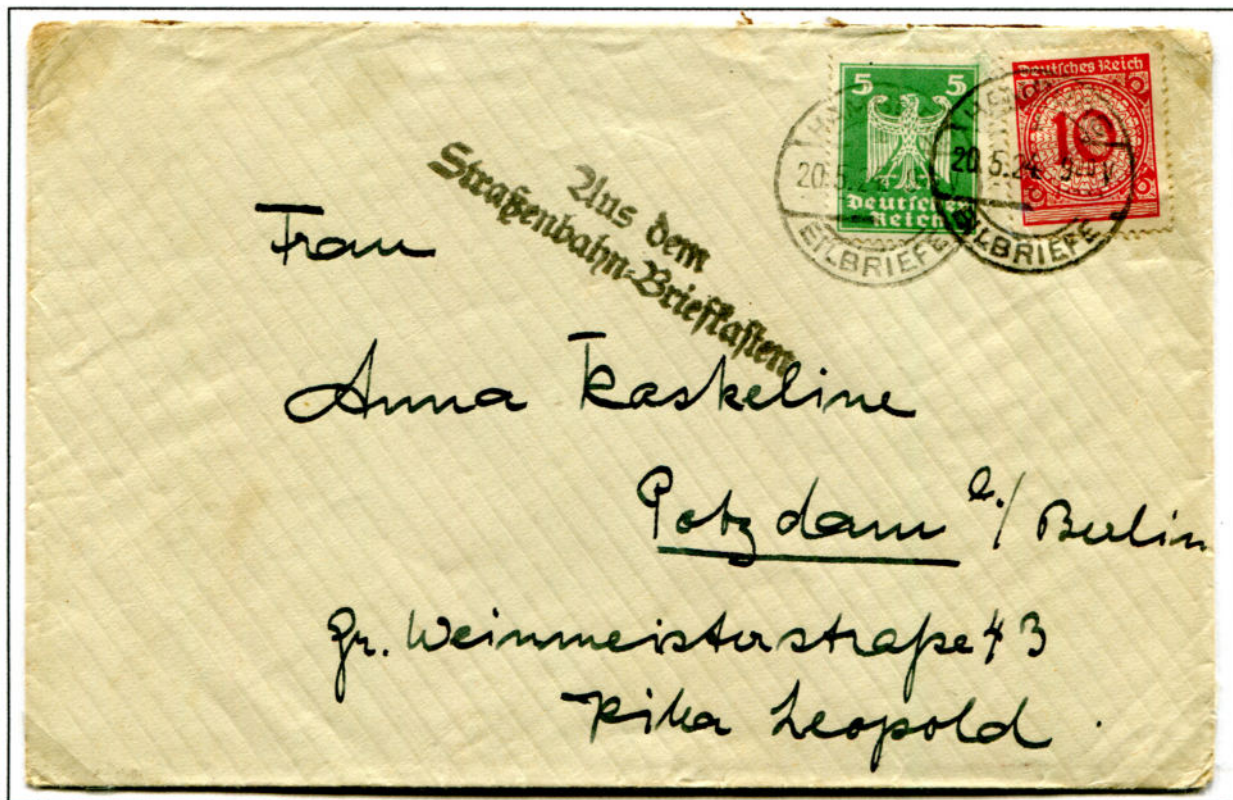 5 5
Deutsches
Reich
Deutsches Reich
10
20.5.24
EILBRIEFE
20.5.24
EILBRIEFE
Aus dem
Straßenbahn-Briefkasten
Frau
Anna Kaskeline
Potzdam b./ Berlin
Gr. Weinmeisterstraße 43
Leopold